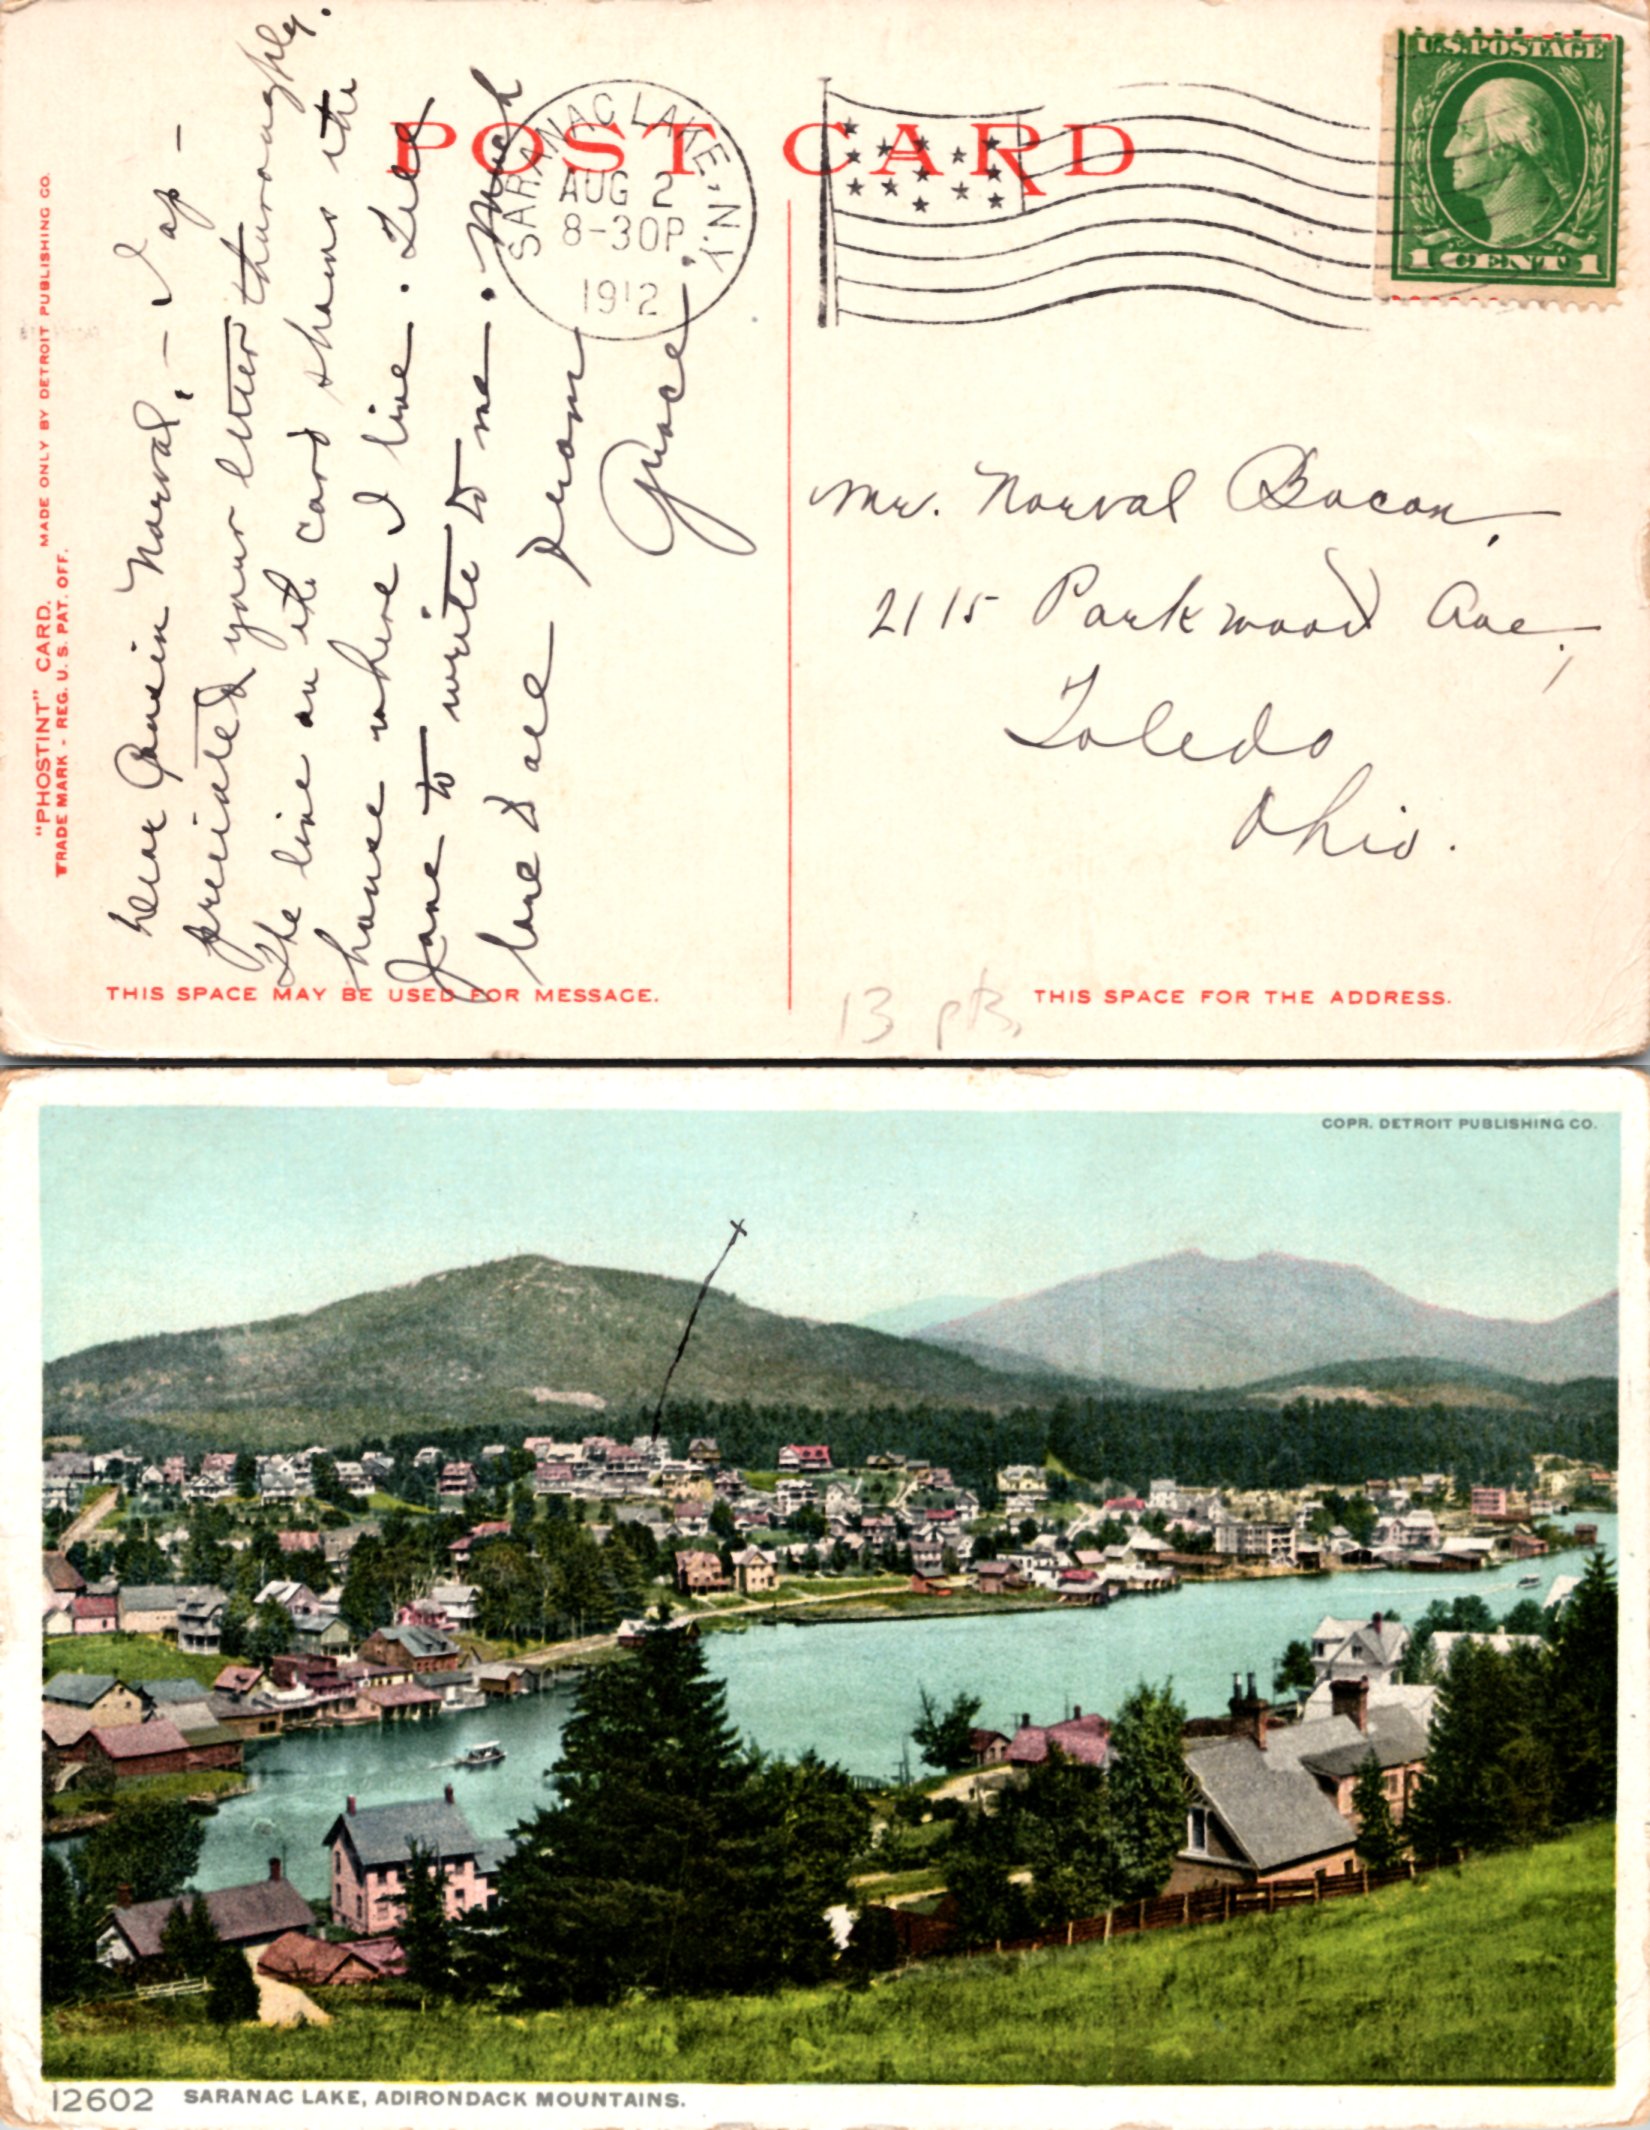 "PHOSTINT" CARD. MADE ONLY BY DETROIT PUBLISHING CO.
TRADE MARK - REG. U. S. PAT. OFF.
POST CARD
SARANAC LAKE, N.Y.
AUG 2
8-30P
1912
U.S. POSTAGE
1 CENT 1
Dear Cousin Norval,- I ap-
preciated your letter thoroughly.
The line on the card shows the
house where I live. Tell
Jane to write to me. Much
love to all from
Grace.
Mr. Norval Bacon,
2115 Parkwood Ave.,
Toledo
Ohio.
THIS SPACE MAY BE USED FOR MESSAGE.
13 pts.
THIS SPACE FOR THE ADDRESS.
COPR. DETROIT PUBLISHING CO.
12602 SARANAC LAKE, ADIRONDACK MOUNTAINS.